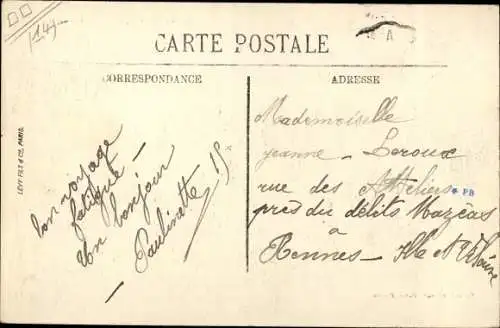 CARTE POSTALE
CORRESPONDANCE
ADRESSE
LÉVY FILS & Cie, PARIS
bon voyage
fatigué –
bon bonjour
– Paulinette
Mademoiselle
jeanne – Leroux
rue des Atteliers
près du délits Mazéas
à
Rennes – Ille et Vilaine
PB